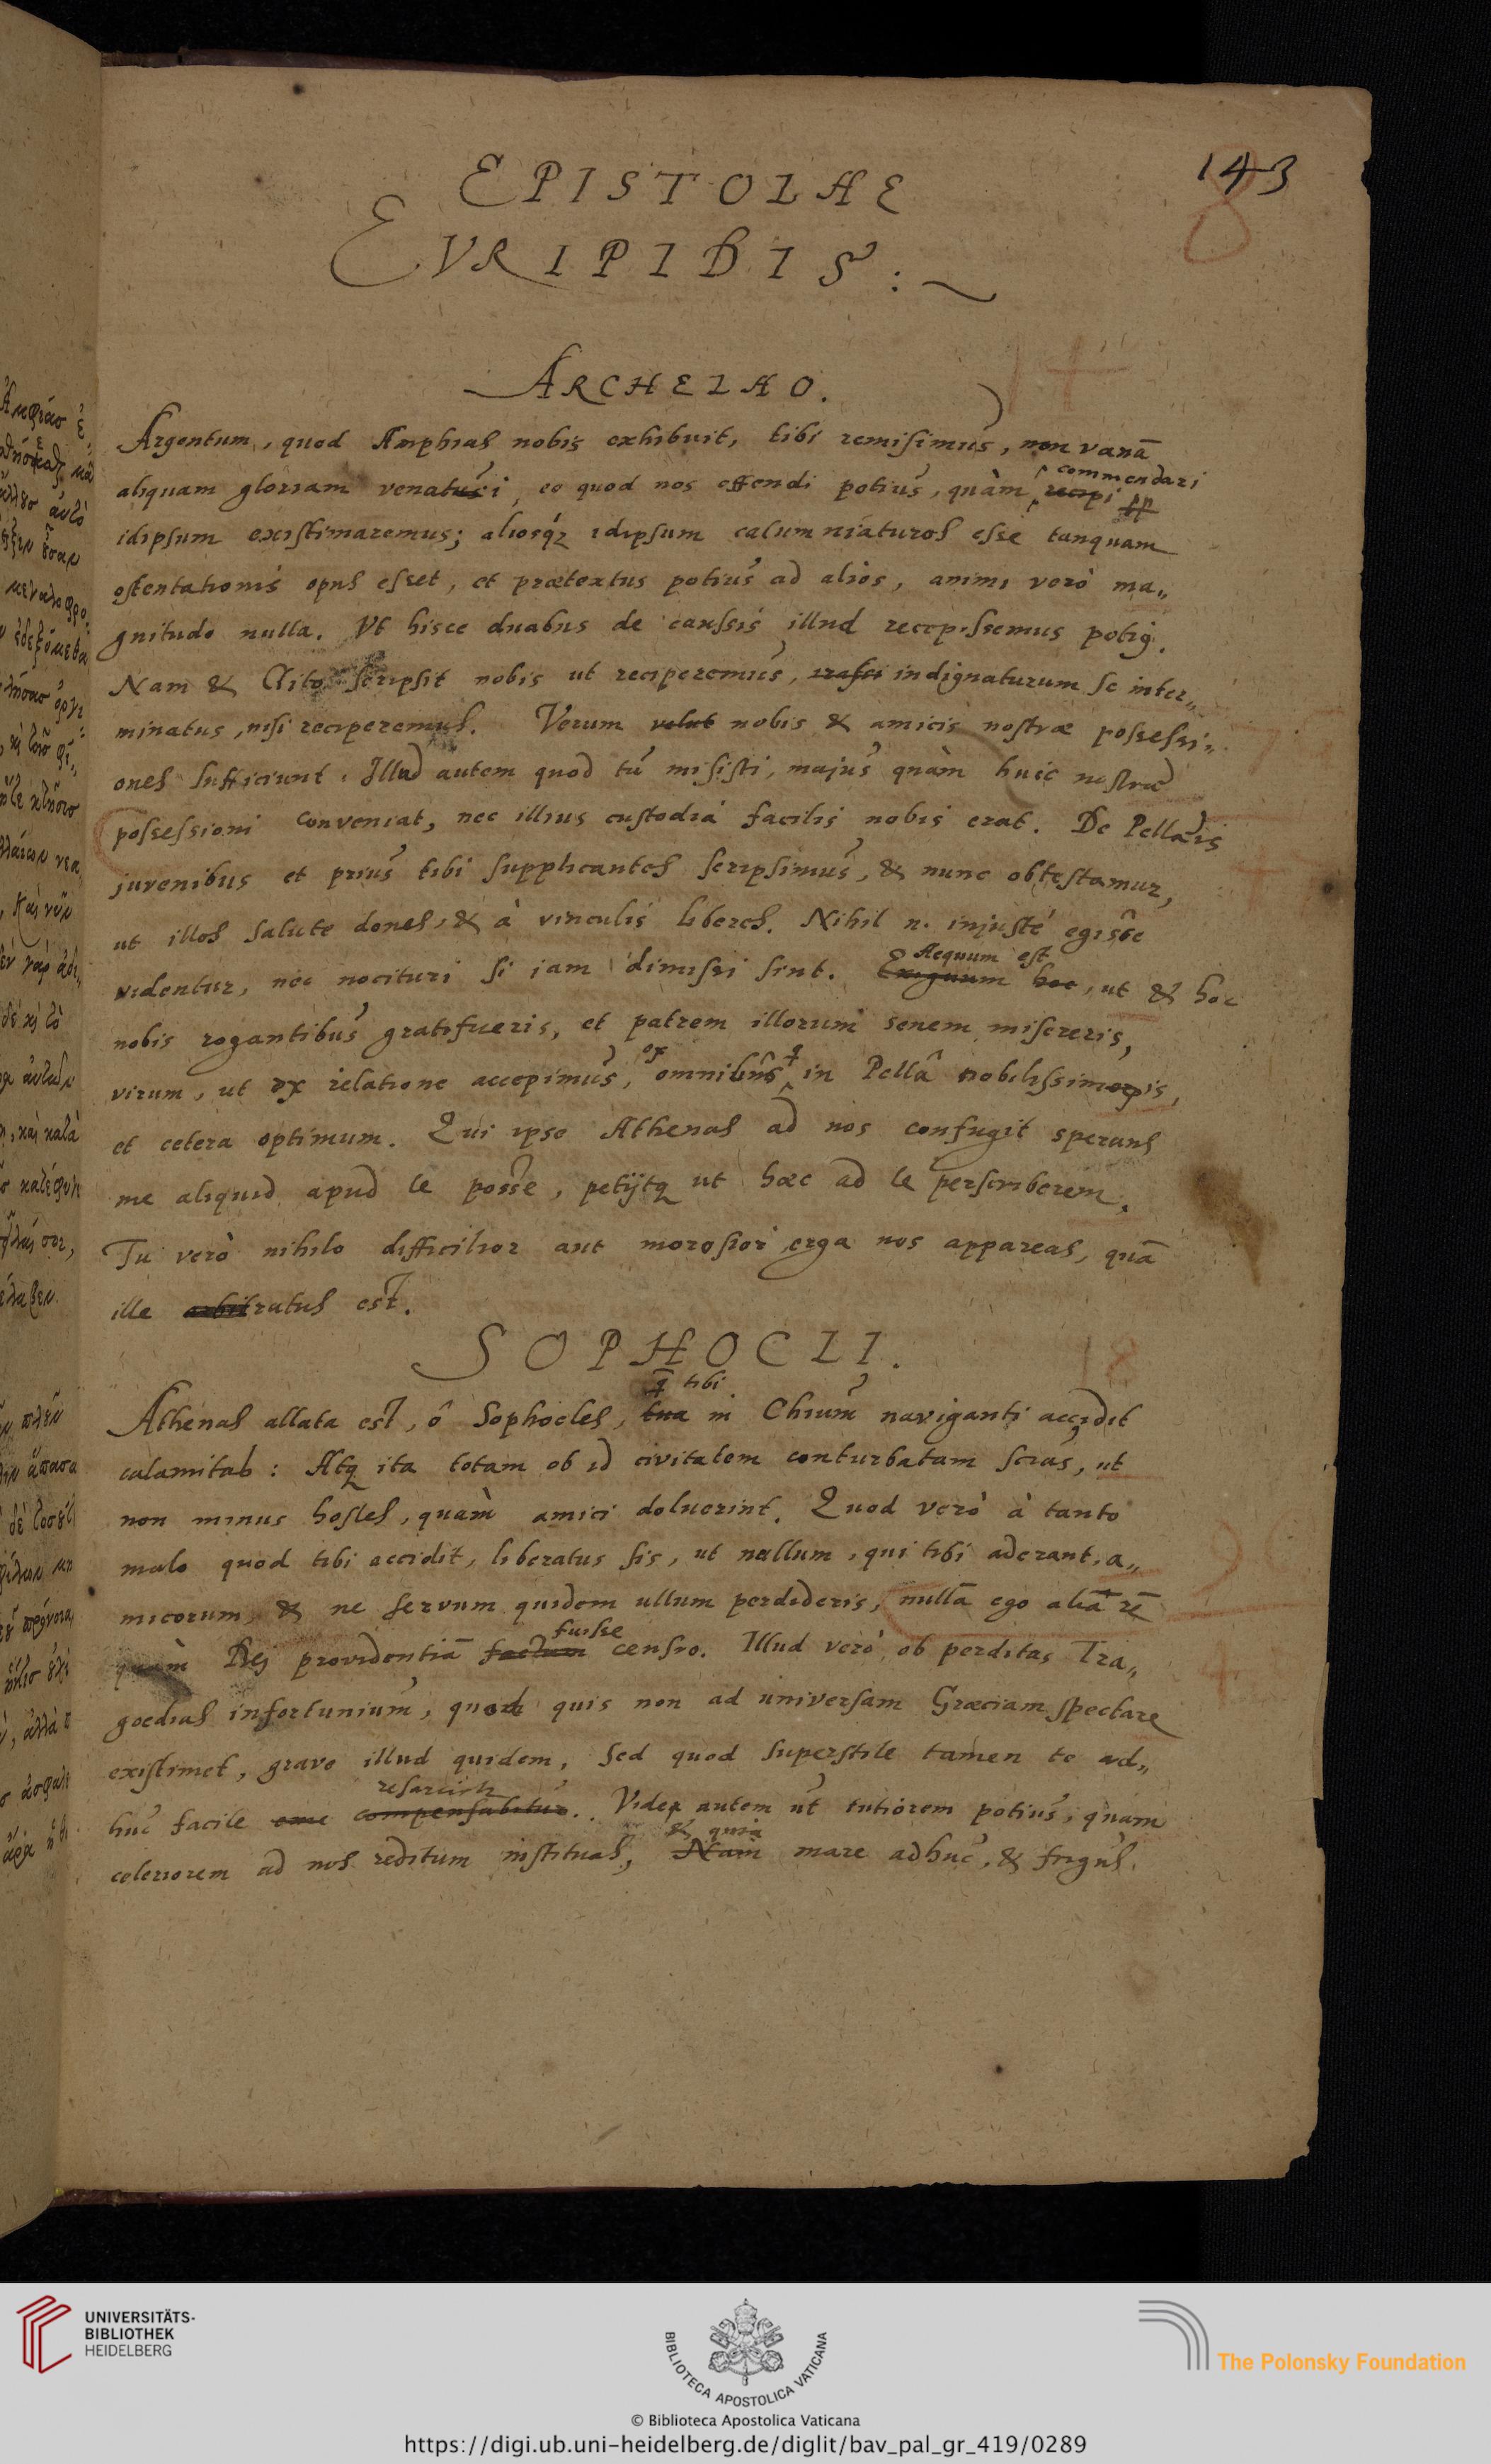 143
8
EPISTOLAE
EVRIPIDIS :
ARCHELAO.
Argentum, quod Amphias nobis exhibuit, tibi remisimus, non vanā
aliquam gloriam venati, eo quod nos offendi potius, quàm commendari recipi
idipsum existimaremus; aliosq́ꝫ idipsum calumniaturos esse tanquam
ostentationis opus esset, et prætextus potius ad alios, animi verò ma„
gnitudo nulla. Vt hisce duabus de caussis illud recepissemus potiꝰ.
Nam & Clito scripsit nobis ut reciperemus, irasci indignaturum se inter„
minatus, nisi reciperemus. Verum velut nobis & amicis nostræ possessi„
ones sufficiunt. Illud autem quod tu misisti, majus quàm huic nostræ
possessioni conveniat, nec illius custodia facilis nobis erat. De Pellæis
juvenibus et prius tibi supplicantes scripsimus, & nunc obtestamur,
ut illos salute dones, & à vinculis liberes. Nihil n. injustè egisse
videntur, nec nocituri si jam dimissi sint. Aequum est
Exiguum hoc, ut & hoc
nobis rogantibus gratifueris, et patrem illorum senem misereris,
virum, ut ex relatione accepimus, ex omnibus in Pellâ nobilissimis,
et cetera optimum. Qui ipse Athenas ad nos confugit sperans
me aliquid apud te posse, petijtq ut hæc ad te perscriberem.
Tu verò nihilo difficilior aut morosior erga nos appareas, quā
ille arbitratus est.
SOPHOCLI.
q̄ tibi
Athenas allata est, ô Sophocles, tua in Chium naviganti accidit
calamitas : Atq ita totam ob id civitatem conturbatam scias, ut
non minus hostes, quàm amici doluerint. Quod verò à tanto
malo quod tibi accidit, liberatus sis, ut nullum, qui tibi aderant, a„
micorum, & ne servum quidem ullum perdideris, nullā ego aliā rē
fuisse
quàm Dej providentiā factum censeo. Illud verò ob perditas Tra„
goedias infortunium, quod quis non ad universam Græciam spectare
existimet, grave illud quidem, sed quod superstite tamen te ad„
resarciet
huc facile compensabitur. Vide autem ut tutiorem potius, quam
& quia
celeriorem ad nos reditum instituas, Nam mare adhuc, & frigus.
UNIVERSITÄTS-
BIBLIOTHEK
HEIDELBERG
BIBLIOTECA APOSTOLICA VATICANA
The Polonsky Foundation
© Biblioteca Apostolica Vaticana
https://digi.ub.uni-heidelberg.de/diglit/bav_pal_gr_419/0289